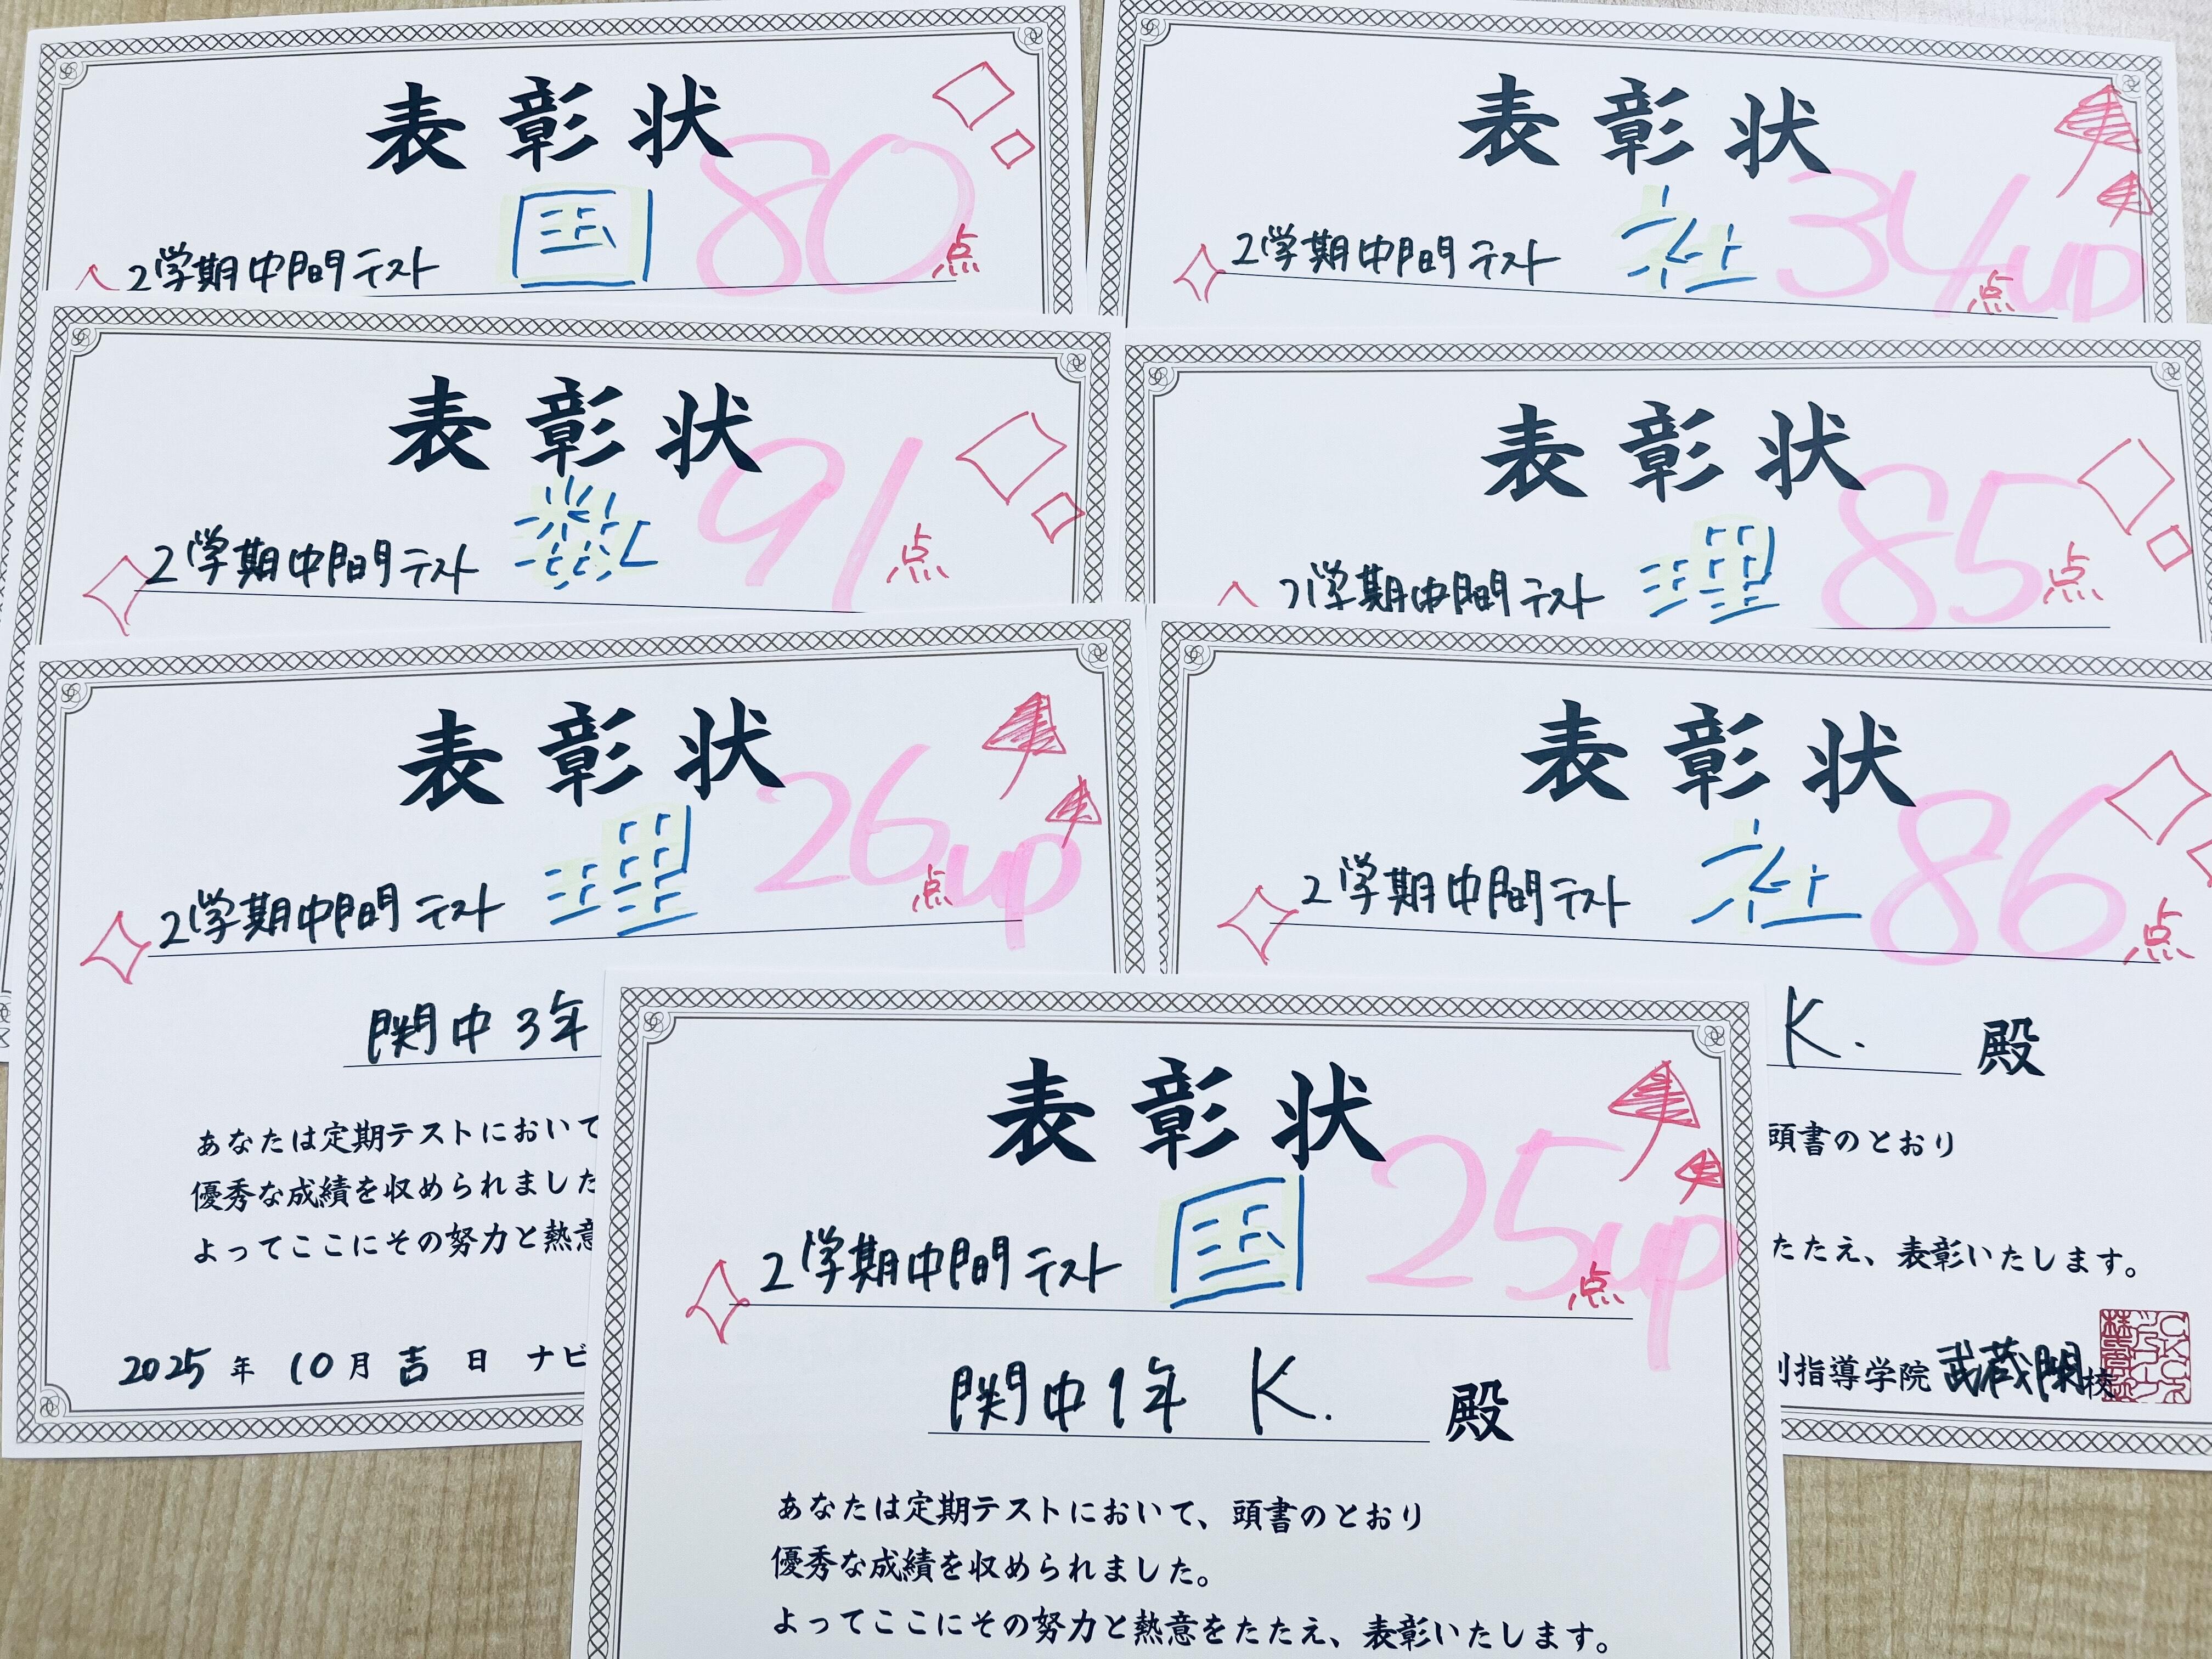 表彰状
2学期中間テスト 国 80点
表彰状
2学期中間テスト 社 34点up
表彰状
2学期中間テスト 数 91点
表彰状
2学期中間テスト 理 85点
表彰状
2学期中間テスト 理 26点up
関中3年
あなたは定期テストにおいて
優秀な成績を収められました
よってここにその努力と熱意
2025年 10月 吉日 ナビ
表彰状
2学期中間テスト 社 86点
K. 殿
頭書のとおり
たたえ、表彰いたします。
別指導学院 武蔵関校
表彰状
2学期中間テスト 国 25点up
関中1年 K. 殿
あなたは定期テストにおいて、頭書のとおり
優秀な成績を収められました。
よってここにその努力と熱意をたたえ、表彰いたします。